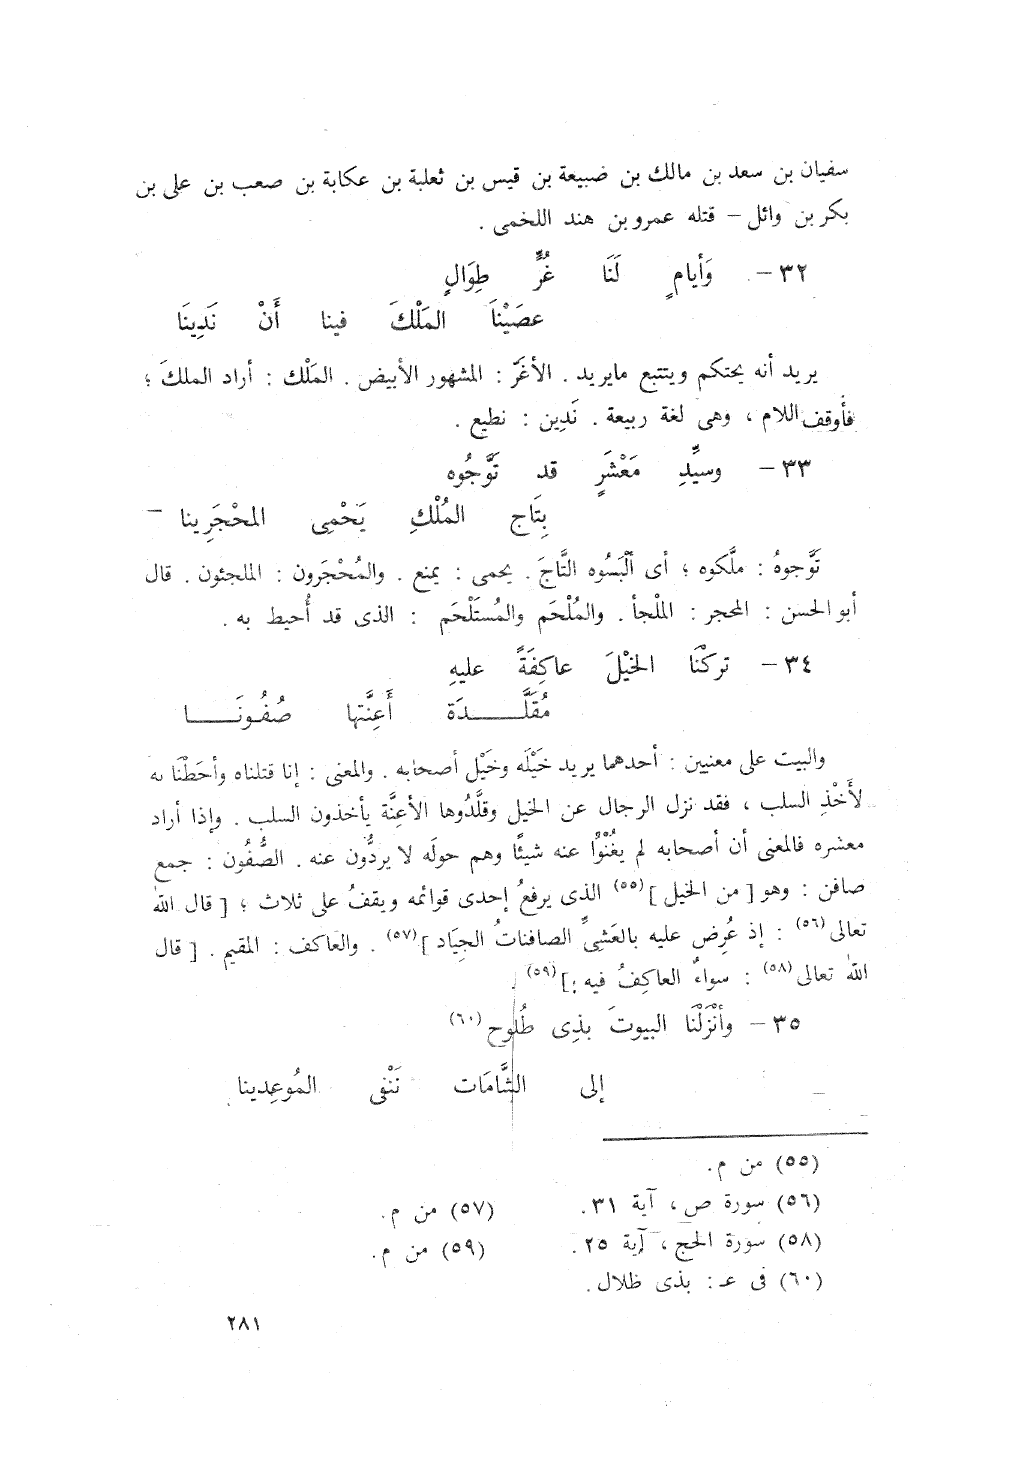 سفيان بن سعد بن مالك بن ضبيعة بن قيس بن ثعلبة بن عكابة بن صعب بن على بن
بكر بن وائل – قتله عمرو بن هند اللخمى .
٣٢ – وَأيامٍ لَنَا غُرٍّ طِوَالٍ
عصَيْنَا المَلْكَ فينا أَنْ نَدِينَا
يريد أنه يحتكم ويتتبع مايريد . الأغَرّ : المشهور الأبيض . المَلْك : أراد الملكَ ؛
فأَوقف اللام ، وهى لغة ربيعة . نَدِين : نطيع .
٣٣ – وسيِّدِ مَعْشَرٍ قد تَوَّجُوه
بِتَاج المُلْكِ يَحْمِى المحْجَرِينا –
تَوَّجوهُ : ملَّكوه ؛ أى ألْبَسُوه التَّاجَ . يحمى : يمنع . والمُحْجَرون : الملجئون . قال
أبو الحسن : المحجر : الملْجأ . والمُلْحَم والمُستَلْحَم : الذى قد أُحيط به .
٣٤ – تركْنَا الخيْلَ عاكِفَةً عليهِ
مُقَلَّـــــدَة أَعِنَّتها صُفُونَـــــا
والبيت على معنيين : أحدهما يريد خَيْلَه وخَيْل أصحابه . والمعنى : إنا قتلناه وأحَطْنَا به
لأَخْذِ السلب ، فقد نزل الرجال عن الخيل وقلَّدُوها الأعِنَّة يأخذون السلب . وإذا أراد
معشره فالمعنى أن أصحابه لم يغْنُوْا عنه شيئًا وهم حولَه لا يردُّون عنه . الصُّفُون : جمع
صافن : وهو [ من الخيل ](٥٥) الذى يرفعُ إحدى قوائمه ويقفُ على ثلاث ؛ [ قال الله
تعالى(٥٦) : إذ عُرِض عليه بالعَشىِّ الصافناتُ الجِيَاد ](٥٧) . والعاكف : المقيم . [ قال
اللهُ تعالى(٥٨) : سواءٌ العاكِفُ فيه ](٥٩) .
٣٥ – وأنْزَلْنَا البيوتَ بذِى طُلُوح(٦٠)
إلى الشَّامَات نَنْفى المُوعِدينا
(٥٥) من م.
(٥٦) سورة ص ، آية ٣١.
(٥٧) من م.
(٥٨) سورة الحج ، آية ٢٥.
(٥٩) من م.
(٦٠) فى عـ : بذى ظلال.
٢٨١